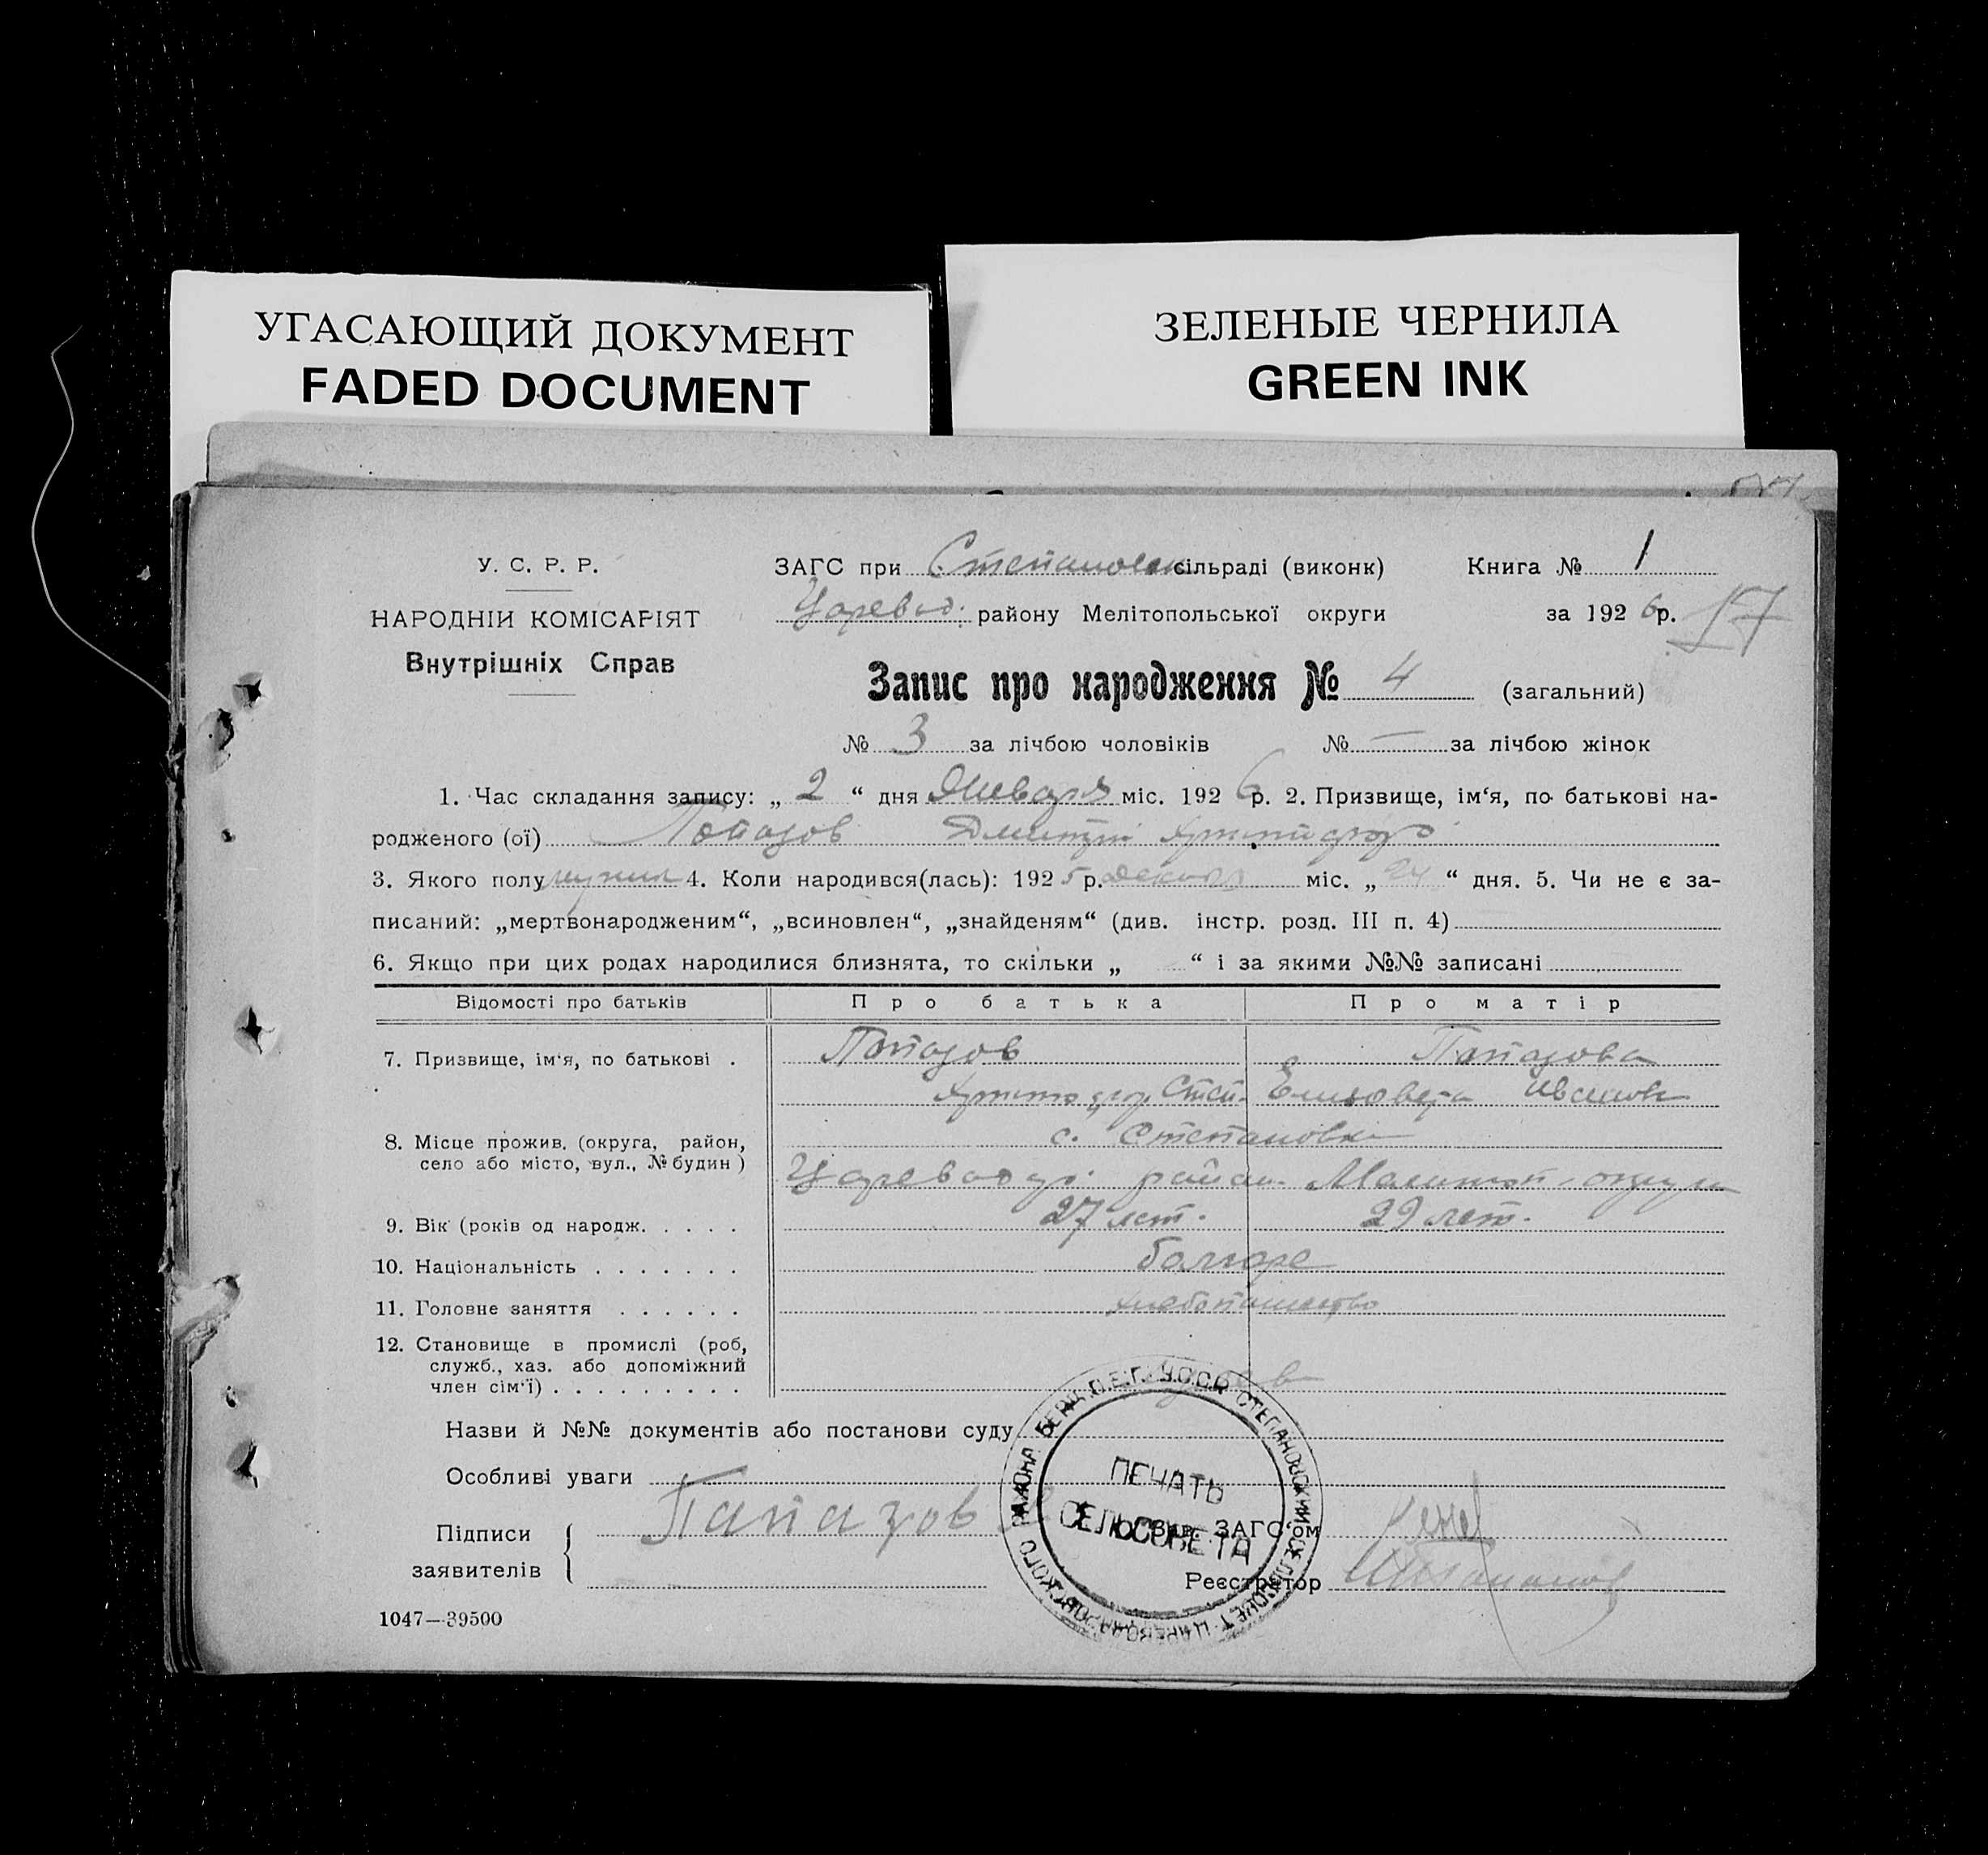 УГАСАЮЩИЙ ДОКУМЕНТ
FADED DOCUMENT
ЗЕЛЕНЫЕ ЧЕРНИЛА
GREEN INK
У. С. Р. Р.
НАРОДНІЙ КОМІСАРІЯТ
Внутрішніх Справ
ЗАГС при Степановск сільраді (виконк) Книга № 1
Царевод. району Мелітопольської округи за 1926р. 17
Запис про народження № 4 (загальний)
№ 3 за лічбою чоловіків № — за лічбою жінок
1. Час складання запису: „ 2 “ дня Января міс. 1926р. 2. Призвище, ім‘я, по батькові на-
родженого (ої) Папазов Дмитрий
3. Якого полу мужск 4. Коли народився(лась): 1925р. декабр міс. „ 24 “ дня. 5. Чи не є за-
писаний: „мертвонародженим“, „всиновлен“, „знайденям“ (див. інстр. розд. III п. 4)
6. Якщо при цих родах народилися близнята, то скільки „ “ і за якими №№ записані
Відомості про батьків Про батька Про матір
7. Призвище, ім‘я, по батькові . Папазов Папазова
Степ. Елизавета Ивановн
8. Місце прожив. (округа, район, с. Степановка
село або місто, вул., № будин ) район. округи
9. Вік (років од народж. . . . . 27 лет. 29 лет.
10. Національність . . . . . . . болгаре
11. Головне заняття . . . . . . хлебопашество
12. Становище в промислі (роб,
служб., хаз. або допоміжний
член сім‘ї) . . . . . . . . .
Назви й №№ документів або постанови суду
Особливі уваги
Підписи Папазов Зав. ЗАГС‘ом
заявителів Реєстратор
ПЕЧАТЬ
СЕЛЬСОВЕТА
У.С.С.Р. СТЕПАНОВСКИЙ СЕЛЬСОВЕТ ЦАРЕВОДАРОВСКОГО РАЙОНА БЕРД.
1047—39500